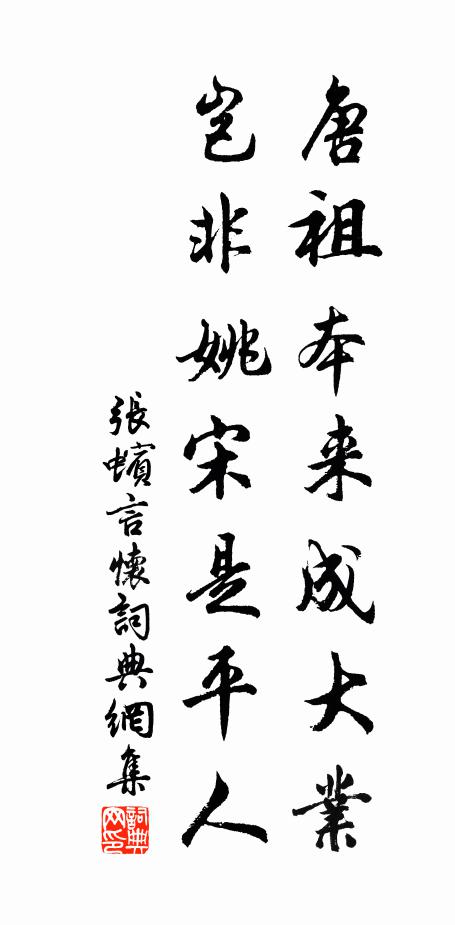 唐祖本来成大業
豈非姚宋是平人
張蠙言懷詞典網集
詞典网印